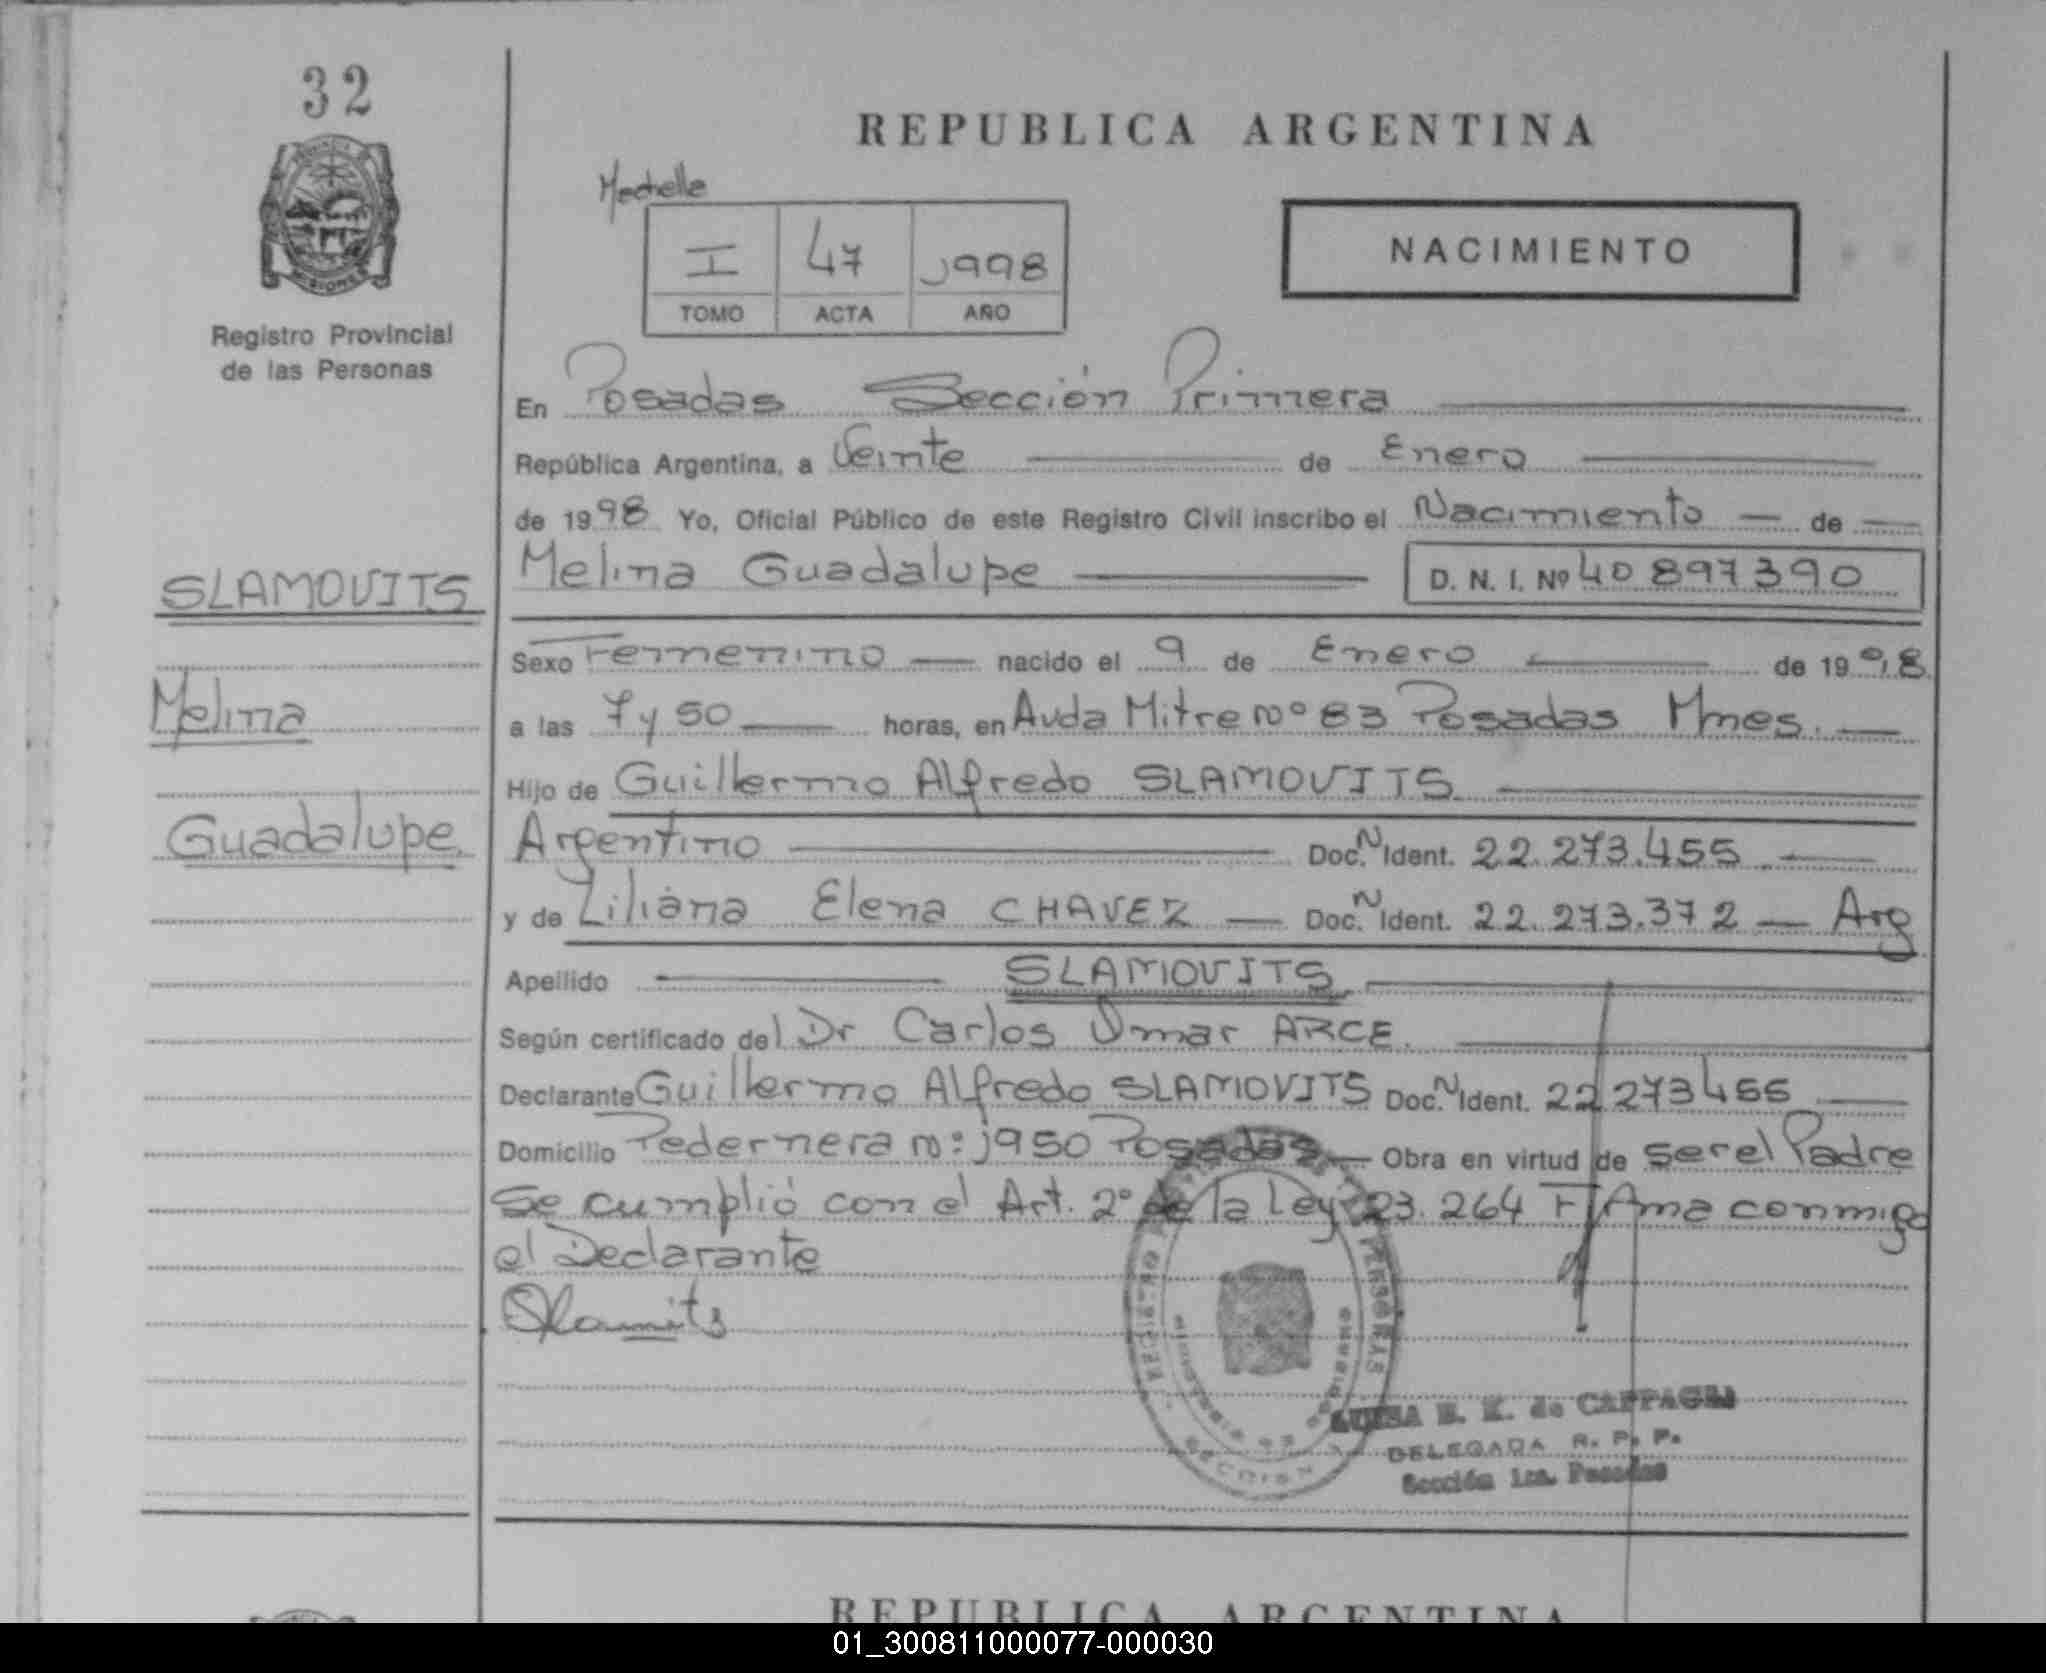 32
REPUBLICA ARGENTINA
I 47 1998
TOMO ACTA AÑO
NACIMIENTO
Registro Provincial
de las Personas
En Posadas Sección Primera
República Argentina, a Veinte de Enero
de 1998 Yo, Oficial Público de este Registro Civil inscribo el Nacimiento de
Melina Guadalupe D. N. I. Nº 40 897390
SLAMOVITS
Melina
Guadalupe.
Sexo Femenino nacido el 9 de Enero de 1998
a las 7 y 50 horas, en Avda Mitre Nº 83 Posadas Mnes.
Hijo de Guillermo Alfredo SLAMOVITS
Argentino Doc. N Ident. 22.273.455
y de Liliana Elena CHAVEZ Doc. N Ident. 22.273.372 Arg
Apellido SLAMOVITS
Según certificado del Dr Carlos Omar ARCE.
Declarante Guillermo Alfredo SLAMOVITS Doc. N Ident. 22 273455
Domicilio Pedernera Nº: 1950 Posadas Obra en virtud de ser el Padre
Se cumplió con el Art. 2º de la Ley 23.264 Firma conmigo
el Declarante
E. K. de
DELEGADA R. P. P.
Sección 1ra. Posadas
REPUBLICA ARGENTINA
01_300811000077-000030